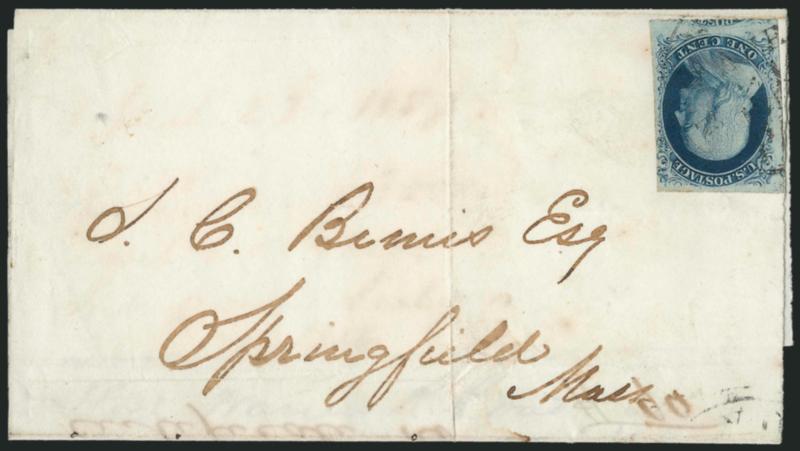 S. C. Bemis Esq
Springfield
Mass
U.S. POSTAGE
ONE CENT